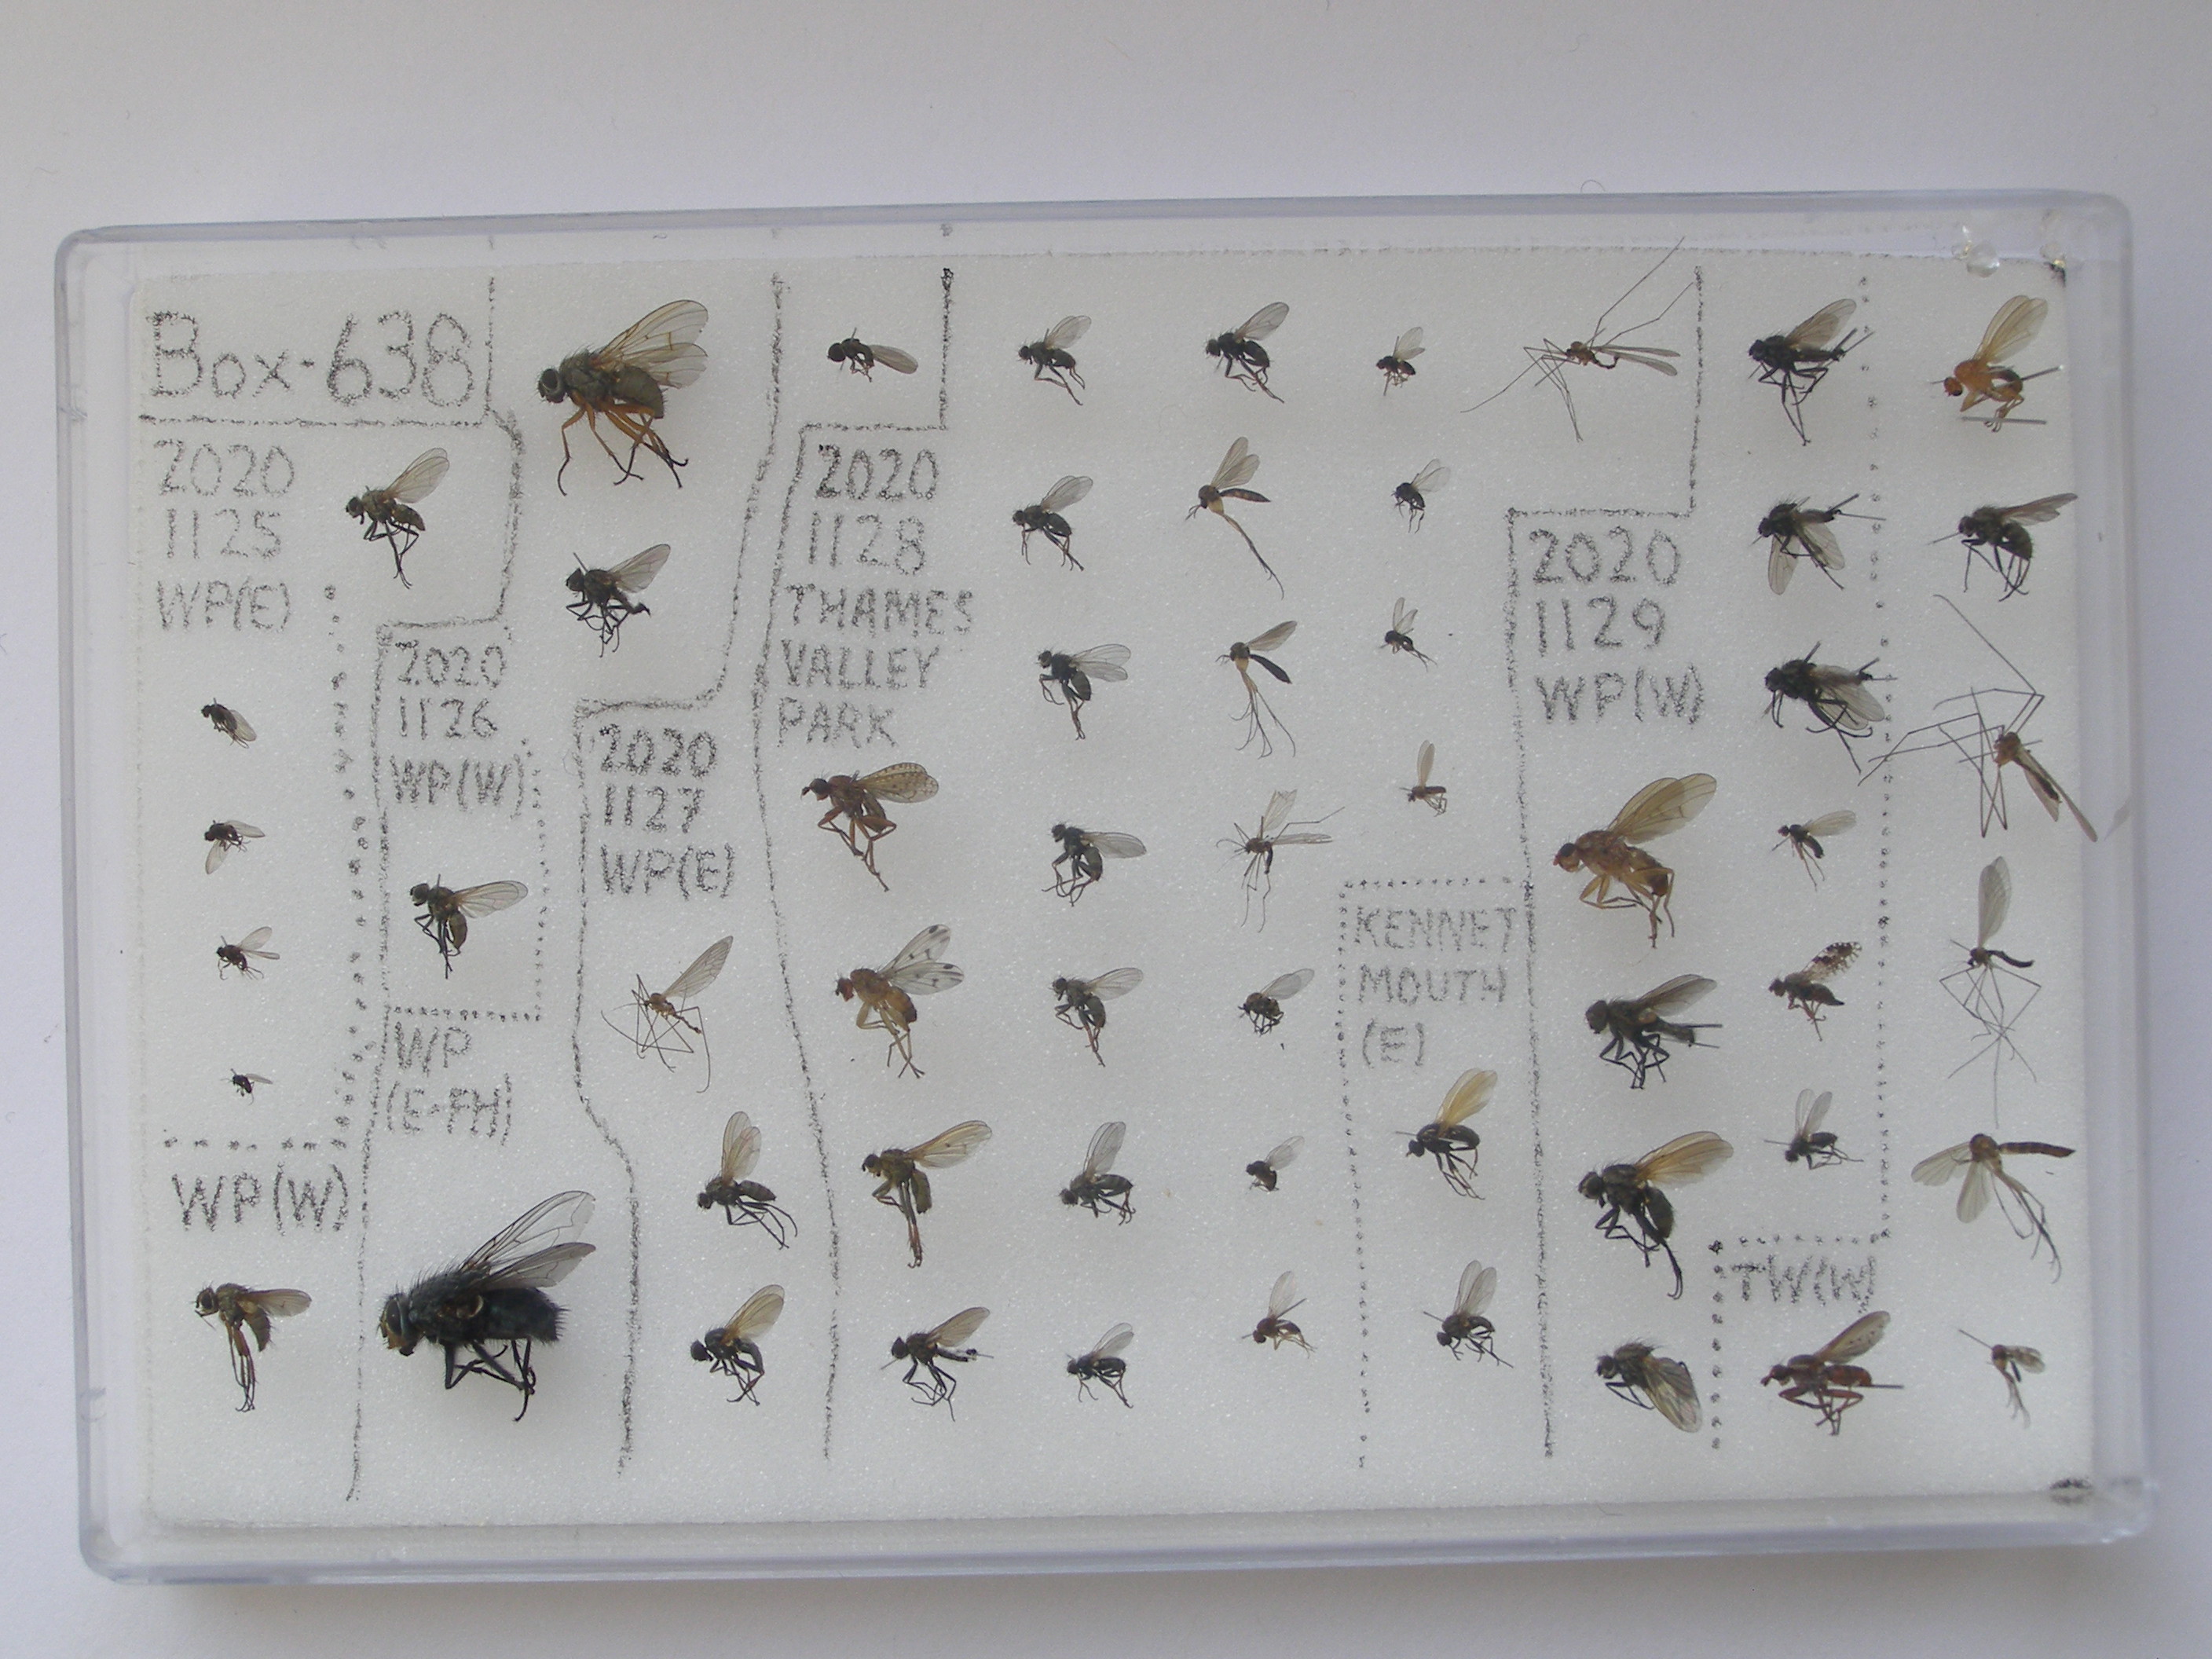 Box-638
2020
1125
WP(E)
WP(W)
2020
1126
WP(W)
WP
(E-FH)
2020
1127
WP(E)
2020
1128
THAMES
VALLEY
PARK
KENNET
MOUTH
(E)
2020
1129
WP(W)
TW(W)